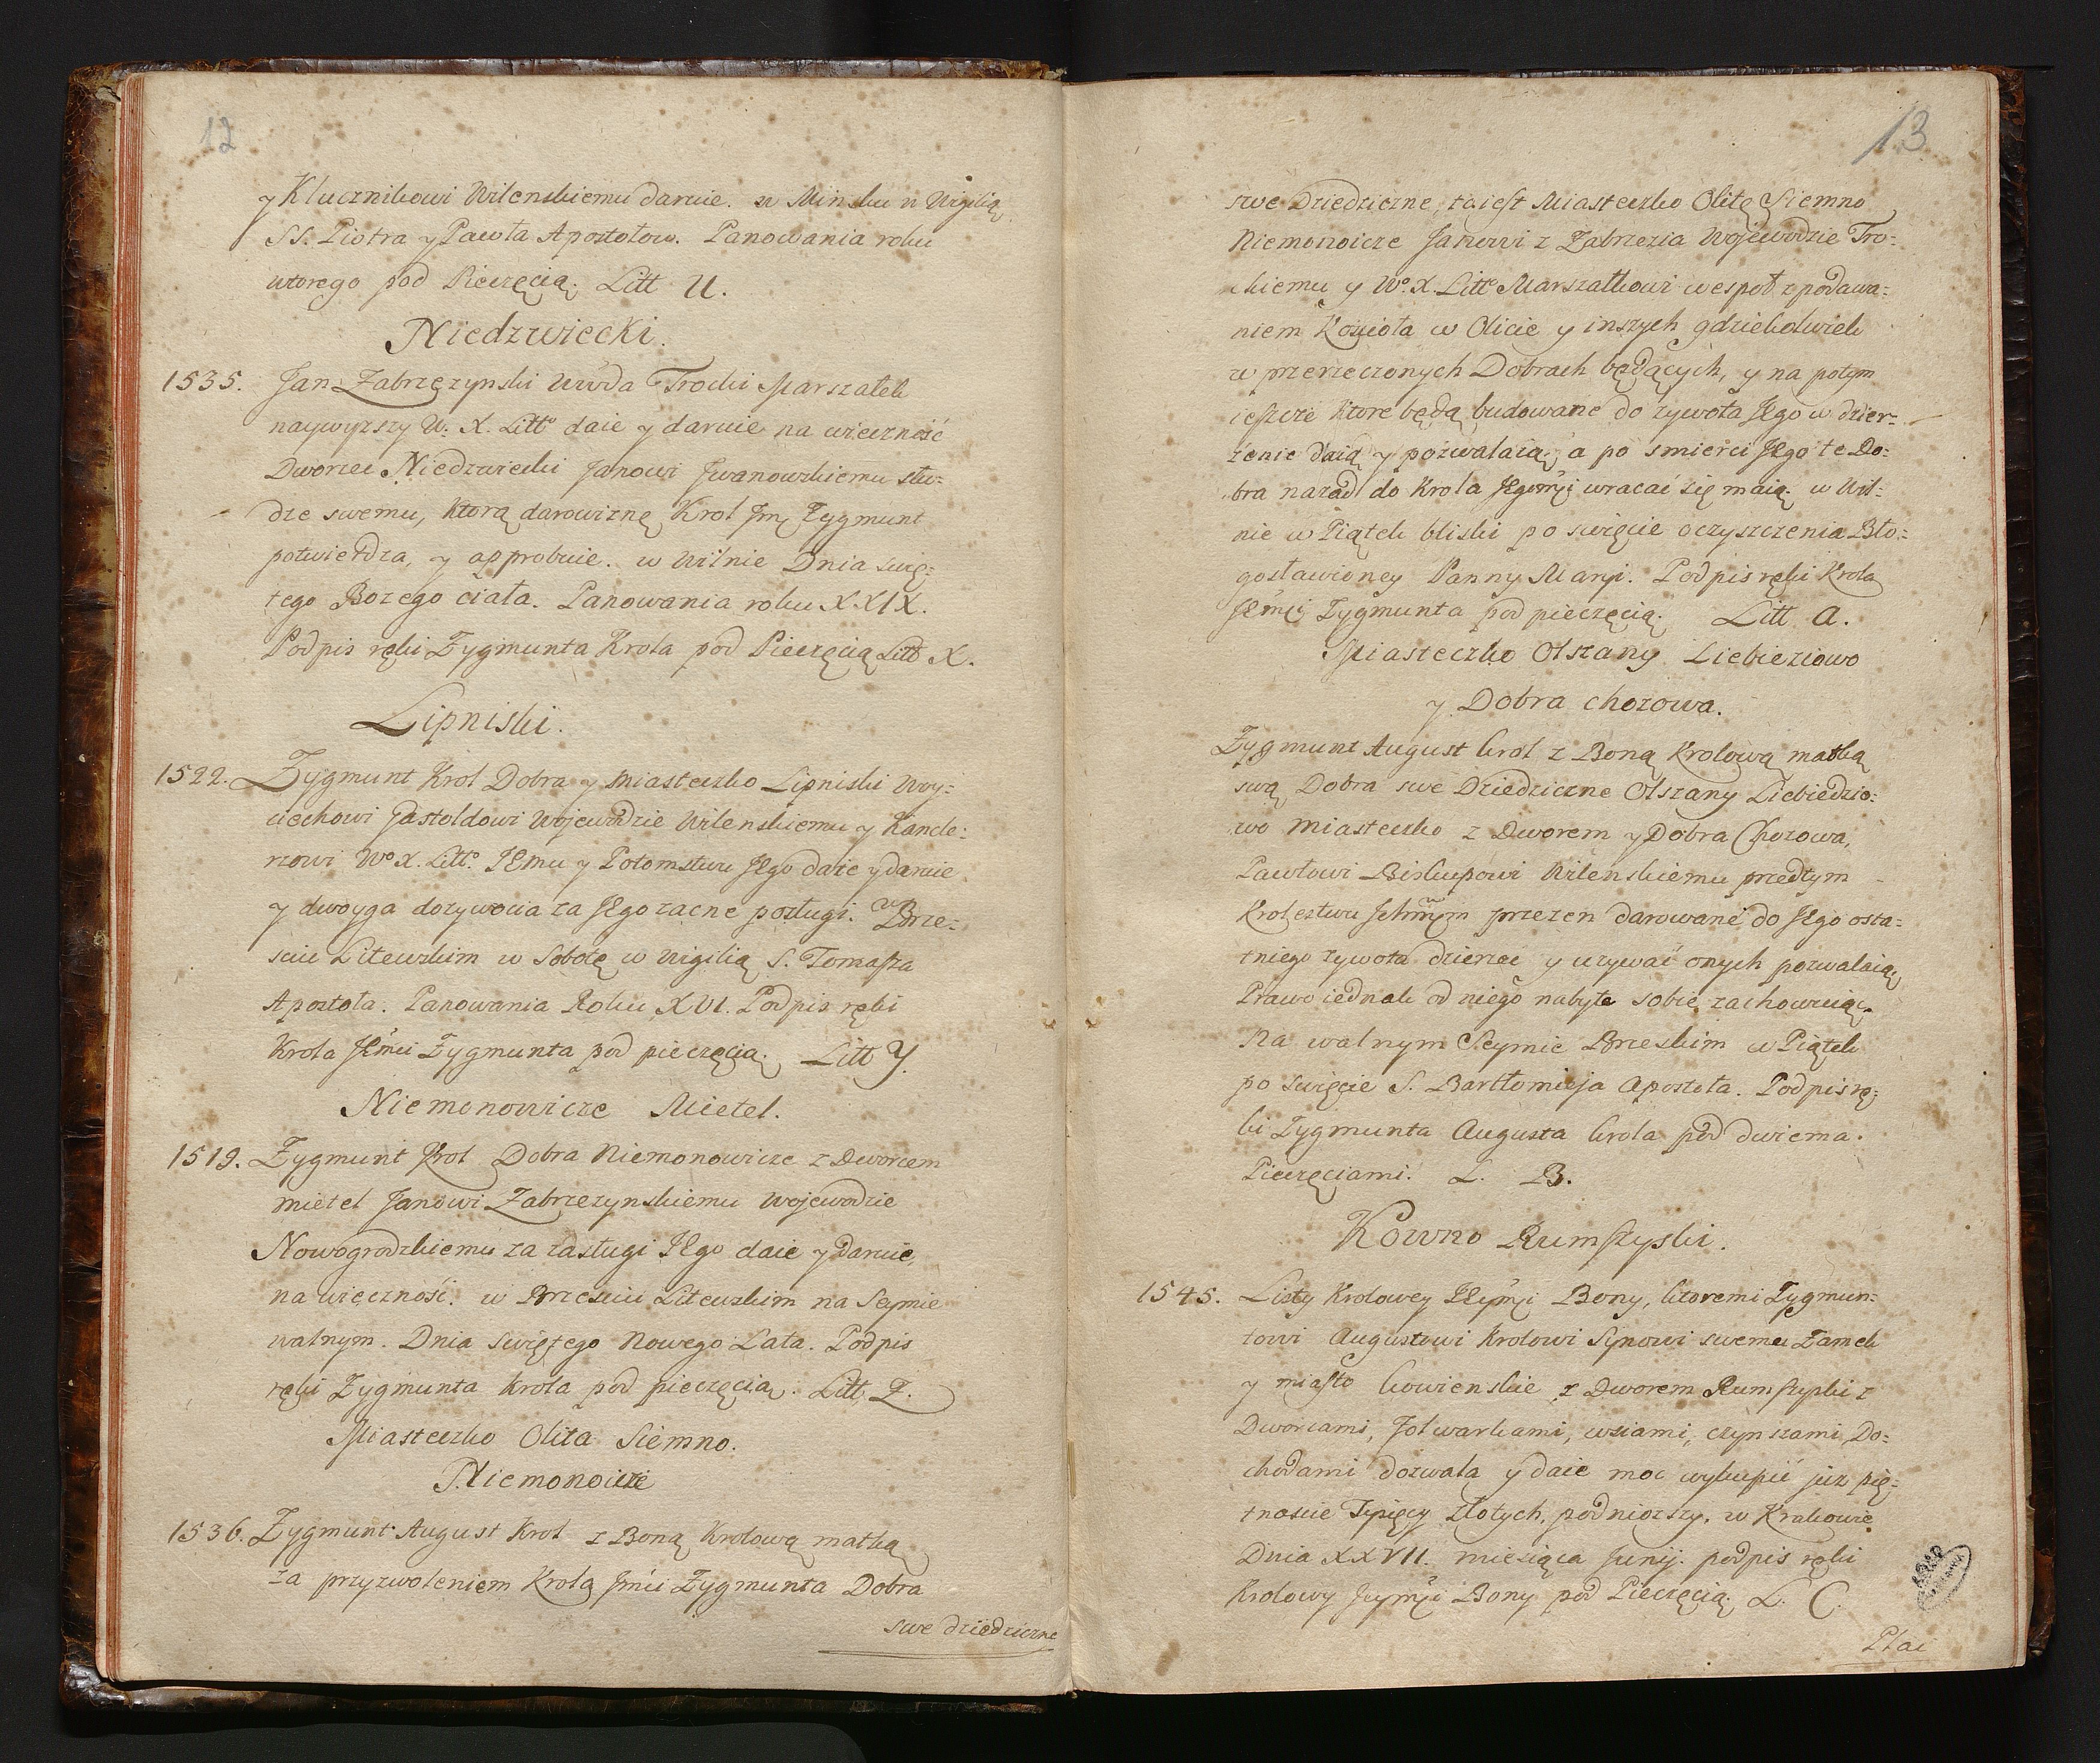 12
y Klucznikowi Wilenskiemu daruie. w Minsku w Wigilią
SS. Piotra y Pawła Apostołow. Panowania roku
wtorego pod Pieczęcią. Litt U.
Niedzwiecki.
1535. Jan Zabrzezynski Wwoda Trocki Marszałek
naywyzszy W. X. Litto daie y daruie na wieczność
Dworzec Niedzwiecki Janowi Jwanowskiemu słu-
dze swemu, ktorą darowiznę Krol Jm Zygmunt
potwierdza, y approbuie. w Wilnie Dnia swię-
tego Bozego ciała. Panowania roku XXIX.
Podpis ręki Zygmunta Krola pod Pieczęcią Litt X.
Lipniski.
1522. Zygmunt Krol Dobra y miasteczko Lipniski Woy-
ciechowi Gastoldowi Wojewodzie Wilenskiemu y Kancle-
rzowi Wo X. Litto. JEmu y Potomstwu JEgo daie y daruie
y dwoyga dozywocia za JEgo zacne posługi. w Brze-
sciu Litewskim w Sobotę w Wigilią S. Tomasza
Apostoła. Panowania Roku XVI. Podpis ręki
Krola JEmci Zygmunta pod pieczęcią. Litt Y.
Niemonowicze Mietel.
1519. Zygmunt Krol Dobra Niemonowicze z Dworcem
mietel Janowi Zabrzezynskiemu Wojewodzie
Nowogrodzkiemu za zasługi JEgo daie y daruie,
na wieczność. w Brzesciu Litewskim na Seymie
walnym. Dnia swiętego Nowego Lata. Podpis
ręki Zygmunta Krola pod pieczęcią. Litt. Z.
Miasteczko Olita Siemno.
Niemonoicze
1536. Zygmunt August Krol z Boną Krolową matką
za przyzwoleniem Krola Jmci Zygmunta Dobra
swe dziedziczne
13
swe Dziedziczne, to iest Miasteczko Olitę Siemno
Niemonoicze Janowi z Zabrzezia Wojewodzie Tro-
ckiemu y Wo. X. Litto Marszałkowi wespoł z podawa-
niem Kościoła w Olicie y inszych gdziekolwiek
w przerzeczonych Dobrach będących, y na potym
ieszcze ktore będą budowane do zywota JEgo w dzier-
żenie daią y pozwalaią, a po smierci JEgo te Do-
bra nazad do Krola JEgomci wracać się maią. w Wil-
nie w Piątek bliski po swięcie oczyszczenia Bło-
gosławioney Panny Maryi. Podpis ręki Krola
JEmci Zygmunta pod pieczęcią. Litt A.
Miasteczko Olszany Liebieziowo
y Dobra chozowa.
Zygmunt August krol z Boną Krolową matką
swą Dobra swe Dziedziczne Olszany Liebiedzio-
wo miasteczko z Dworem y Dobra Chozowa,
Pawłowi Biskupowi Wilenskiemu przedtym
Krolestwu Jchmm przezen darowane do JEgo osta-
tniego zywota dzierzec y uzywać onych pozwalaią,
Prawo iednak od niego nabyte sobie zachowuiąc.
Na walnym Seymie Brzeskim w Piątek
po swięcie S. Bartłomieja Apostoła. Podpis rę-
ki Zygmunta Augusta krola pod dwiema
Pieczęciami. L. B.
Kowno Rumszyski.
1545. Listy Krolowey JEymci Bony, ktoremi Zygmun-
towi Augustowi Krolowi Synowi swemu Zamek
y miasto kowienskie z Dworem Rumszyski z
Dworcami, folwarkami, wsiami, czynszami, Do-
chodami dozwala y daie moc wykupić już pię-
tnascie Tysięcy złotych, podniozszy. w Krakowie
Dnia XXVII. miesiąca Junij. podpis ręki
Krolowy Jeymci Bony pod Pieczęcią. L. C.
Plac